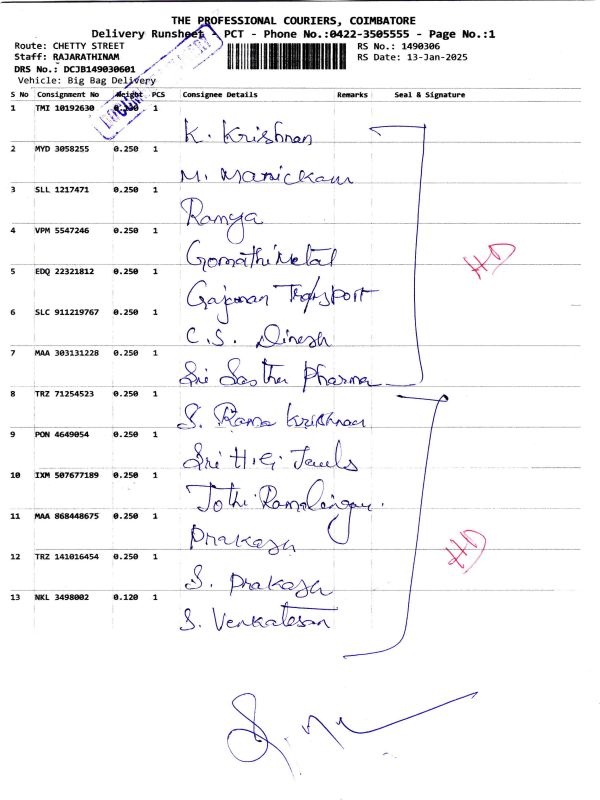 THE PROFESSIONAL COURIERS, COIMBATORE
Delivery Runsheet - PCT - Phone No.:0422-3505555 - Page No.:1
Route: CHETTY STREET
RS No.: 1490306
Staff: RAJARATHINAM
RS Date: 13-Jan-2025
DRS No.: DCJB149030601
Vehicle: Big Bag Delivery
S No Consignment No Weight PCS Consignee Details Remarks Seal & Signature
1 TMI 10192630 1
K. Krishnan
2 MYD 3058255 0.250 1
M. Manickam
3 SLL 1217471 0.250 1
Ramya
4 VPM 5547246 0.250 1
Gomathi Metal
HD
5 EDQ 22321812 0.250 1
Gajanan Transport
6 SLC 911219767 0.250 1
C.S. Dinesh
7 MAA 303131228 0.250 1
Sri Sastha Pharma
8 TRZ 71254523 0.250 1
S. Rama Krishnan
9 PON 4649054 0.250 1
Sri H.G. Jewels
10 IXM 507677189 0.250 1
Jothi Ramalingam.
11 MAA 868448675 0.250 1
Prakash
HD
12 TRZ 141016454 0.250 1
S. Prakash
13 NKL 3498002 0.120 1
S. Venkatesan